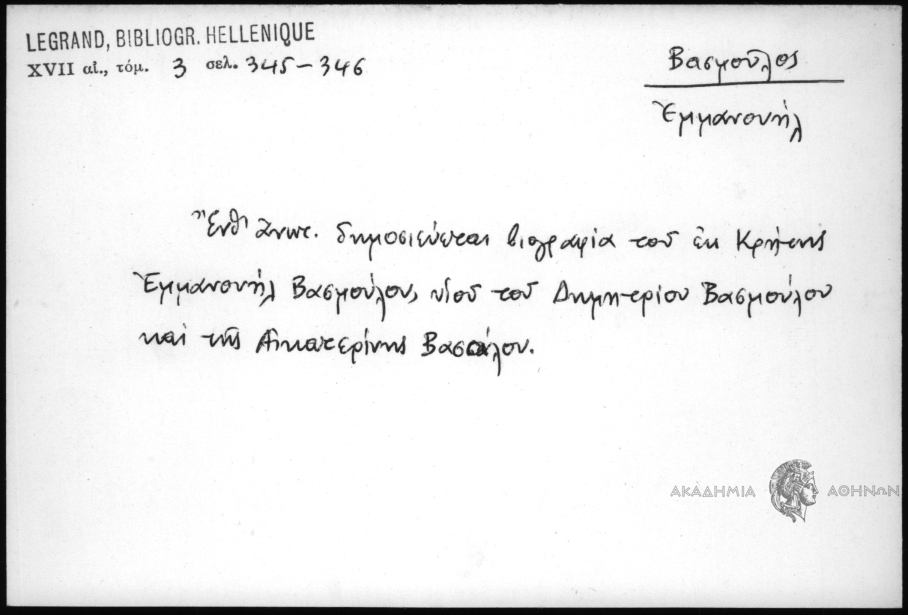 LEGRAND, BIBLIOGR. HELLENIQUE
XVII αἰ., τόμ. 3 σελ. 345–346
Βασμοῦλος
Ἐμμανουήλ
Ἔνθ' ἀνωτ. δημοσιεύεται βιογραφία τοῦ ἐκ Κρήτης
Ἐμμανουήλ Βασμούλου, υἱοῦ τοῦ Δημητρίου Βασμούλου
καὶ τῆς Αἰκατερίνης
ΑΚΑΔΗΜΙΑ ΑΘΗΝΩΝ